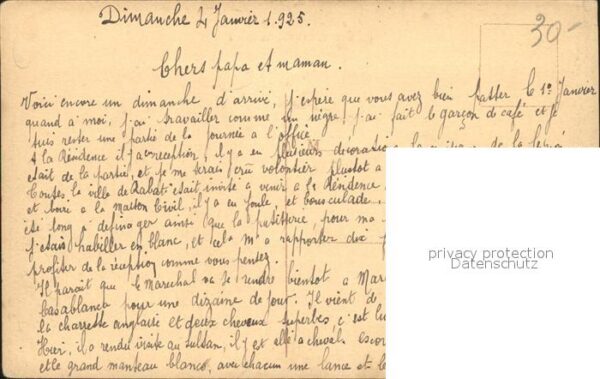 Dimanche 4 Janvier 1.925.
30-
Chers papa et maman.
Voici encore un dimanche d'arrivé, j'espère que vous avez bien passer le 1er Janvier
quand a moi, j'ai travailler comme un nègre, j'ai fait le garçon de café et je
suis rester une partie de la journée a l'office
A la Résidence il y a reception, il y a eu plusieurs décorations
était de la partie, et je me serais cru volontier plustot a
Toutes la ville de Rabat était invité a venir a la Résidence
et boire a la maison Civil, il y a eu foule, et bousculade.
été long a déménager ainsi que la patisserie, pour ma
j'étais habiller en blanc, et cela m'a rapporter dix
profiter de la réception comme vous pensez.
Il parait que le Marechal va se rendre bientot a
Casablanca pour une dizaine de jour. Il vient de
la charrette anglaise et deux chevaux superbes, c'est
Hier, il a rendu visite au sultan, il y est allé a cheval,
et le grand manteau blanc, avec chacun une lance et
privacy protection
Datenschutz